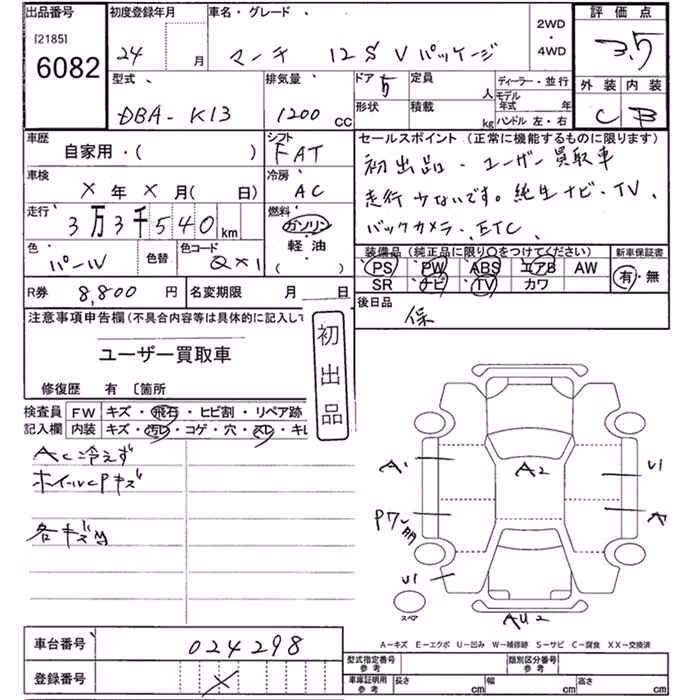 出品番号
[2185]
6082
初度登録年月
24 月
車名・グレード
マーチ 12S Vパッケージ
2WD
・
4WD
評価点
3.5
外装 内装
C B
型式
DBA-K13
排気量
1200 CC
ドア 5
形状
定員 人
積載 kg
ディーラー・並行
モデル年式 年
ハンドル 左・右
車歴
自家用・( )
シフト
FAT
車検
X 年 X 月( 日)
冷房
AC
走行
3万3千540 km
燃料
ガソリン
・
軽油
( )
色
パール
色替
色コード
QX1
セールスポイント (正常に機能するものに限ります)
初出品、ユーザー買取車
走行少ないです。純生ナビ、TV、
バックカメラ、ETC、
装備品 (純正品に限り○をつけてください)
PS PW ABS エアB AW
SR ナビ TV カワ
新車保証書
有・無
R券 8,800 円
名変期限 月 日
後日品
保
注意事項申告欄 (不具合内容等は具体的に記入して
ユーザー買取車
修復歴 有 〔箇所
初出品
検査員
記入欄
FW キズ・飛石・ヒビ割・リペア跡
内装 キズ・汚レ・コゲ・穴・スレ・キレ
AC冷えず
ホイールCPキズ
各キズ
A1
A2
U1
P7
A
U1
AU2
スペア
A-キズ E-エクボ U-凹み W-補修跡 S-サビ C-腐食 XX-交換済
車台番号
024298
登録番号
X
型式指定番号
参考
類別区分番号
参考
車庫証明用
参考
長さ cm 幅 cm 高さ cm